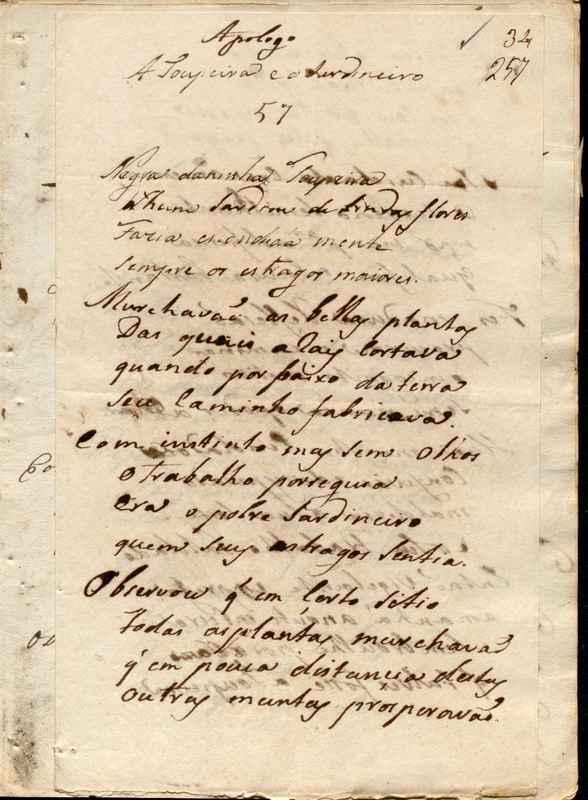 Apologo
34
257
A Toupeira e o Jardineiro
57
Negra daninha Toupeira
N'hum Jardim de lindas flores
Fazia escondida mente
Sempre os estragos maiores.
Murchavaõ as bellas plantas
Das quais a raiz cortava
quando por baixo da terra
seu caminho fabricava.
Com instinto mas sem olhos
o trabalho proseguia
Era o pobre Jardineiro
quem seus estragos sentia.
Observou q' em certo sitio
todas as plantas murchavaõ
q' em pouca distancia destas
outras muntas prosperavaõ.